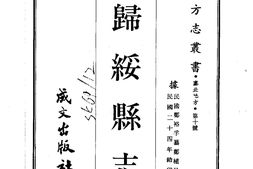 方志叢書・塞北地方・第十號
據民國鄭裕孚纂鄭植
民國二十四年鉛印
歸綏縣志
成文出版社